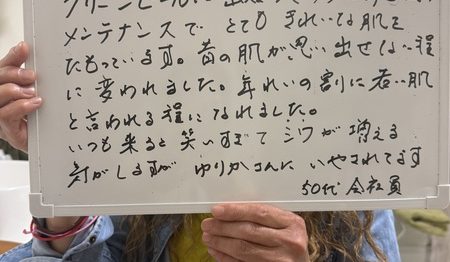 メンテナンスで とても きれいな肌を
たもっています。昔の肌が思い出せない程
に 変われました。年れいの割に若い肌
と言われる程になれました。
いつも来ると 笑いすぎて シワが増える
気がしますが ゆりかさんに いやされてます
50代 会社員